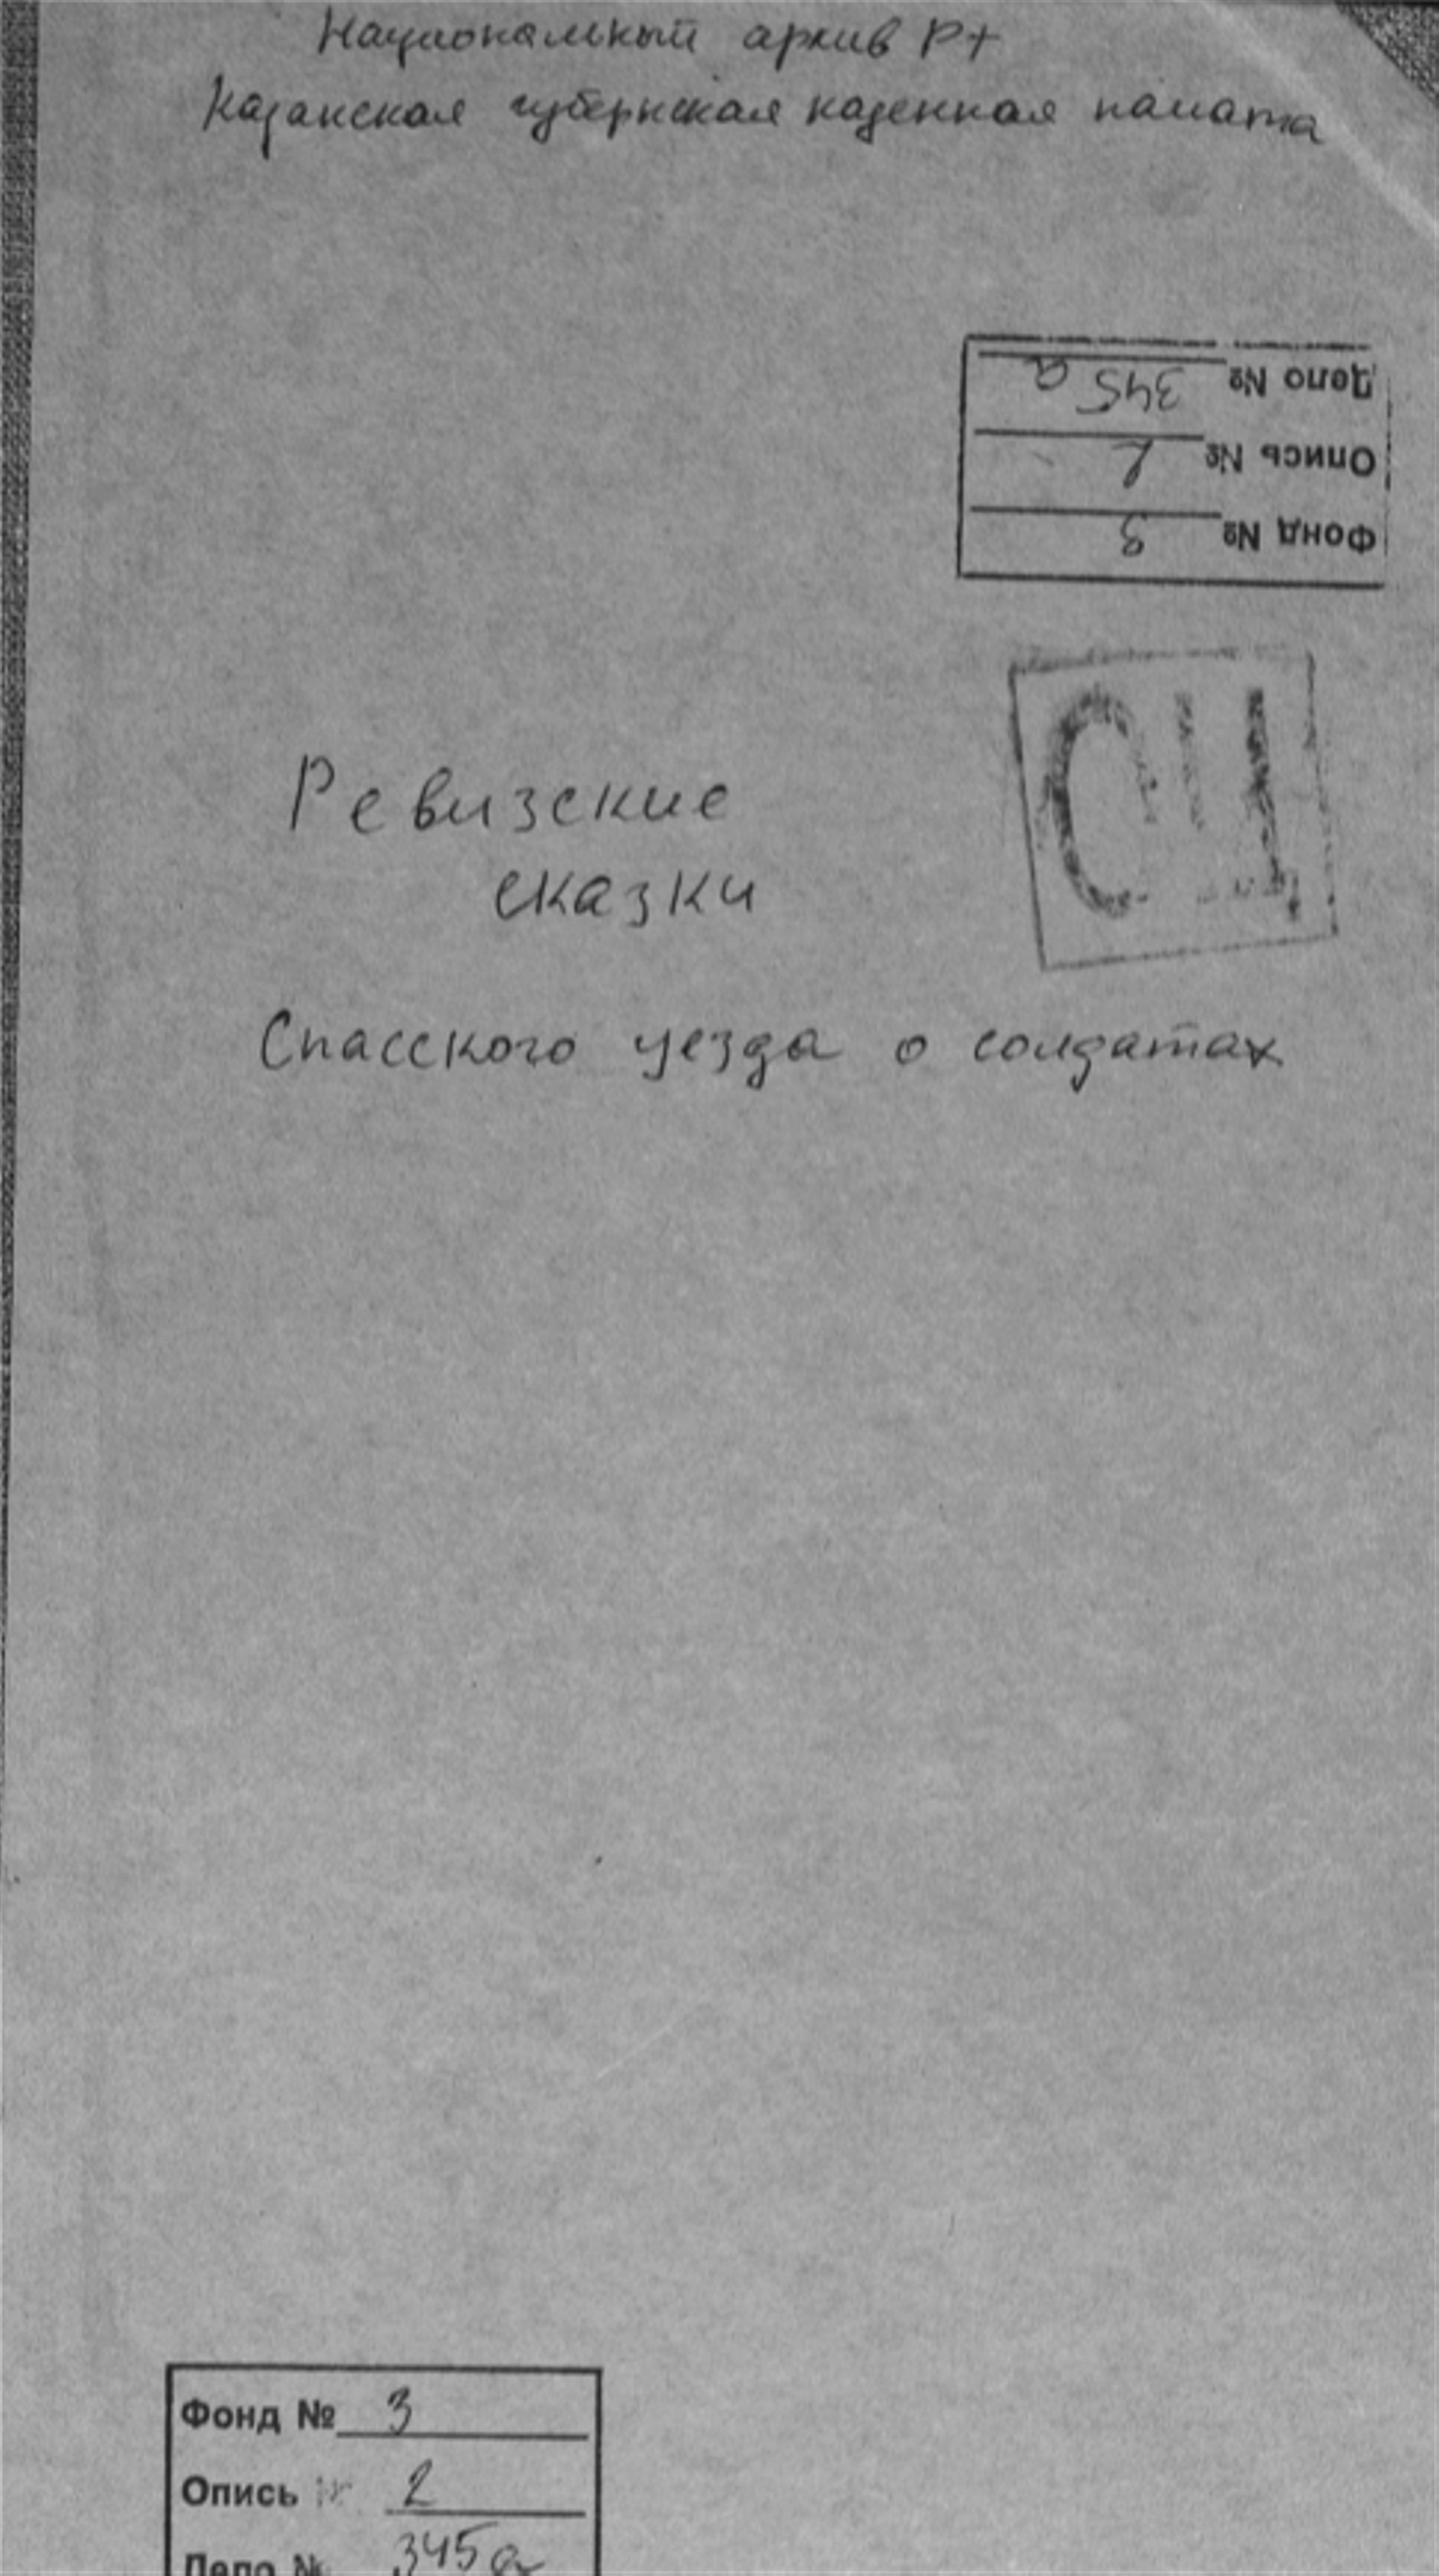 Национальный архив РТ
Казанская губернская казенная палата
Дело № 345 а
Опись № 2
Фонд № 3
СЦ
Ревизские
сказки
Спасского уезда о солдатах
Фонд № 3
Опись № 2
Дело № 345 а